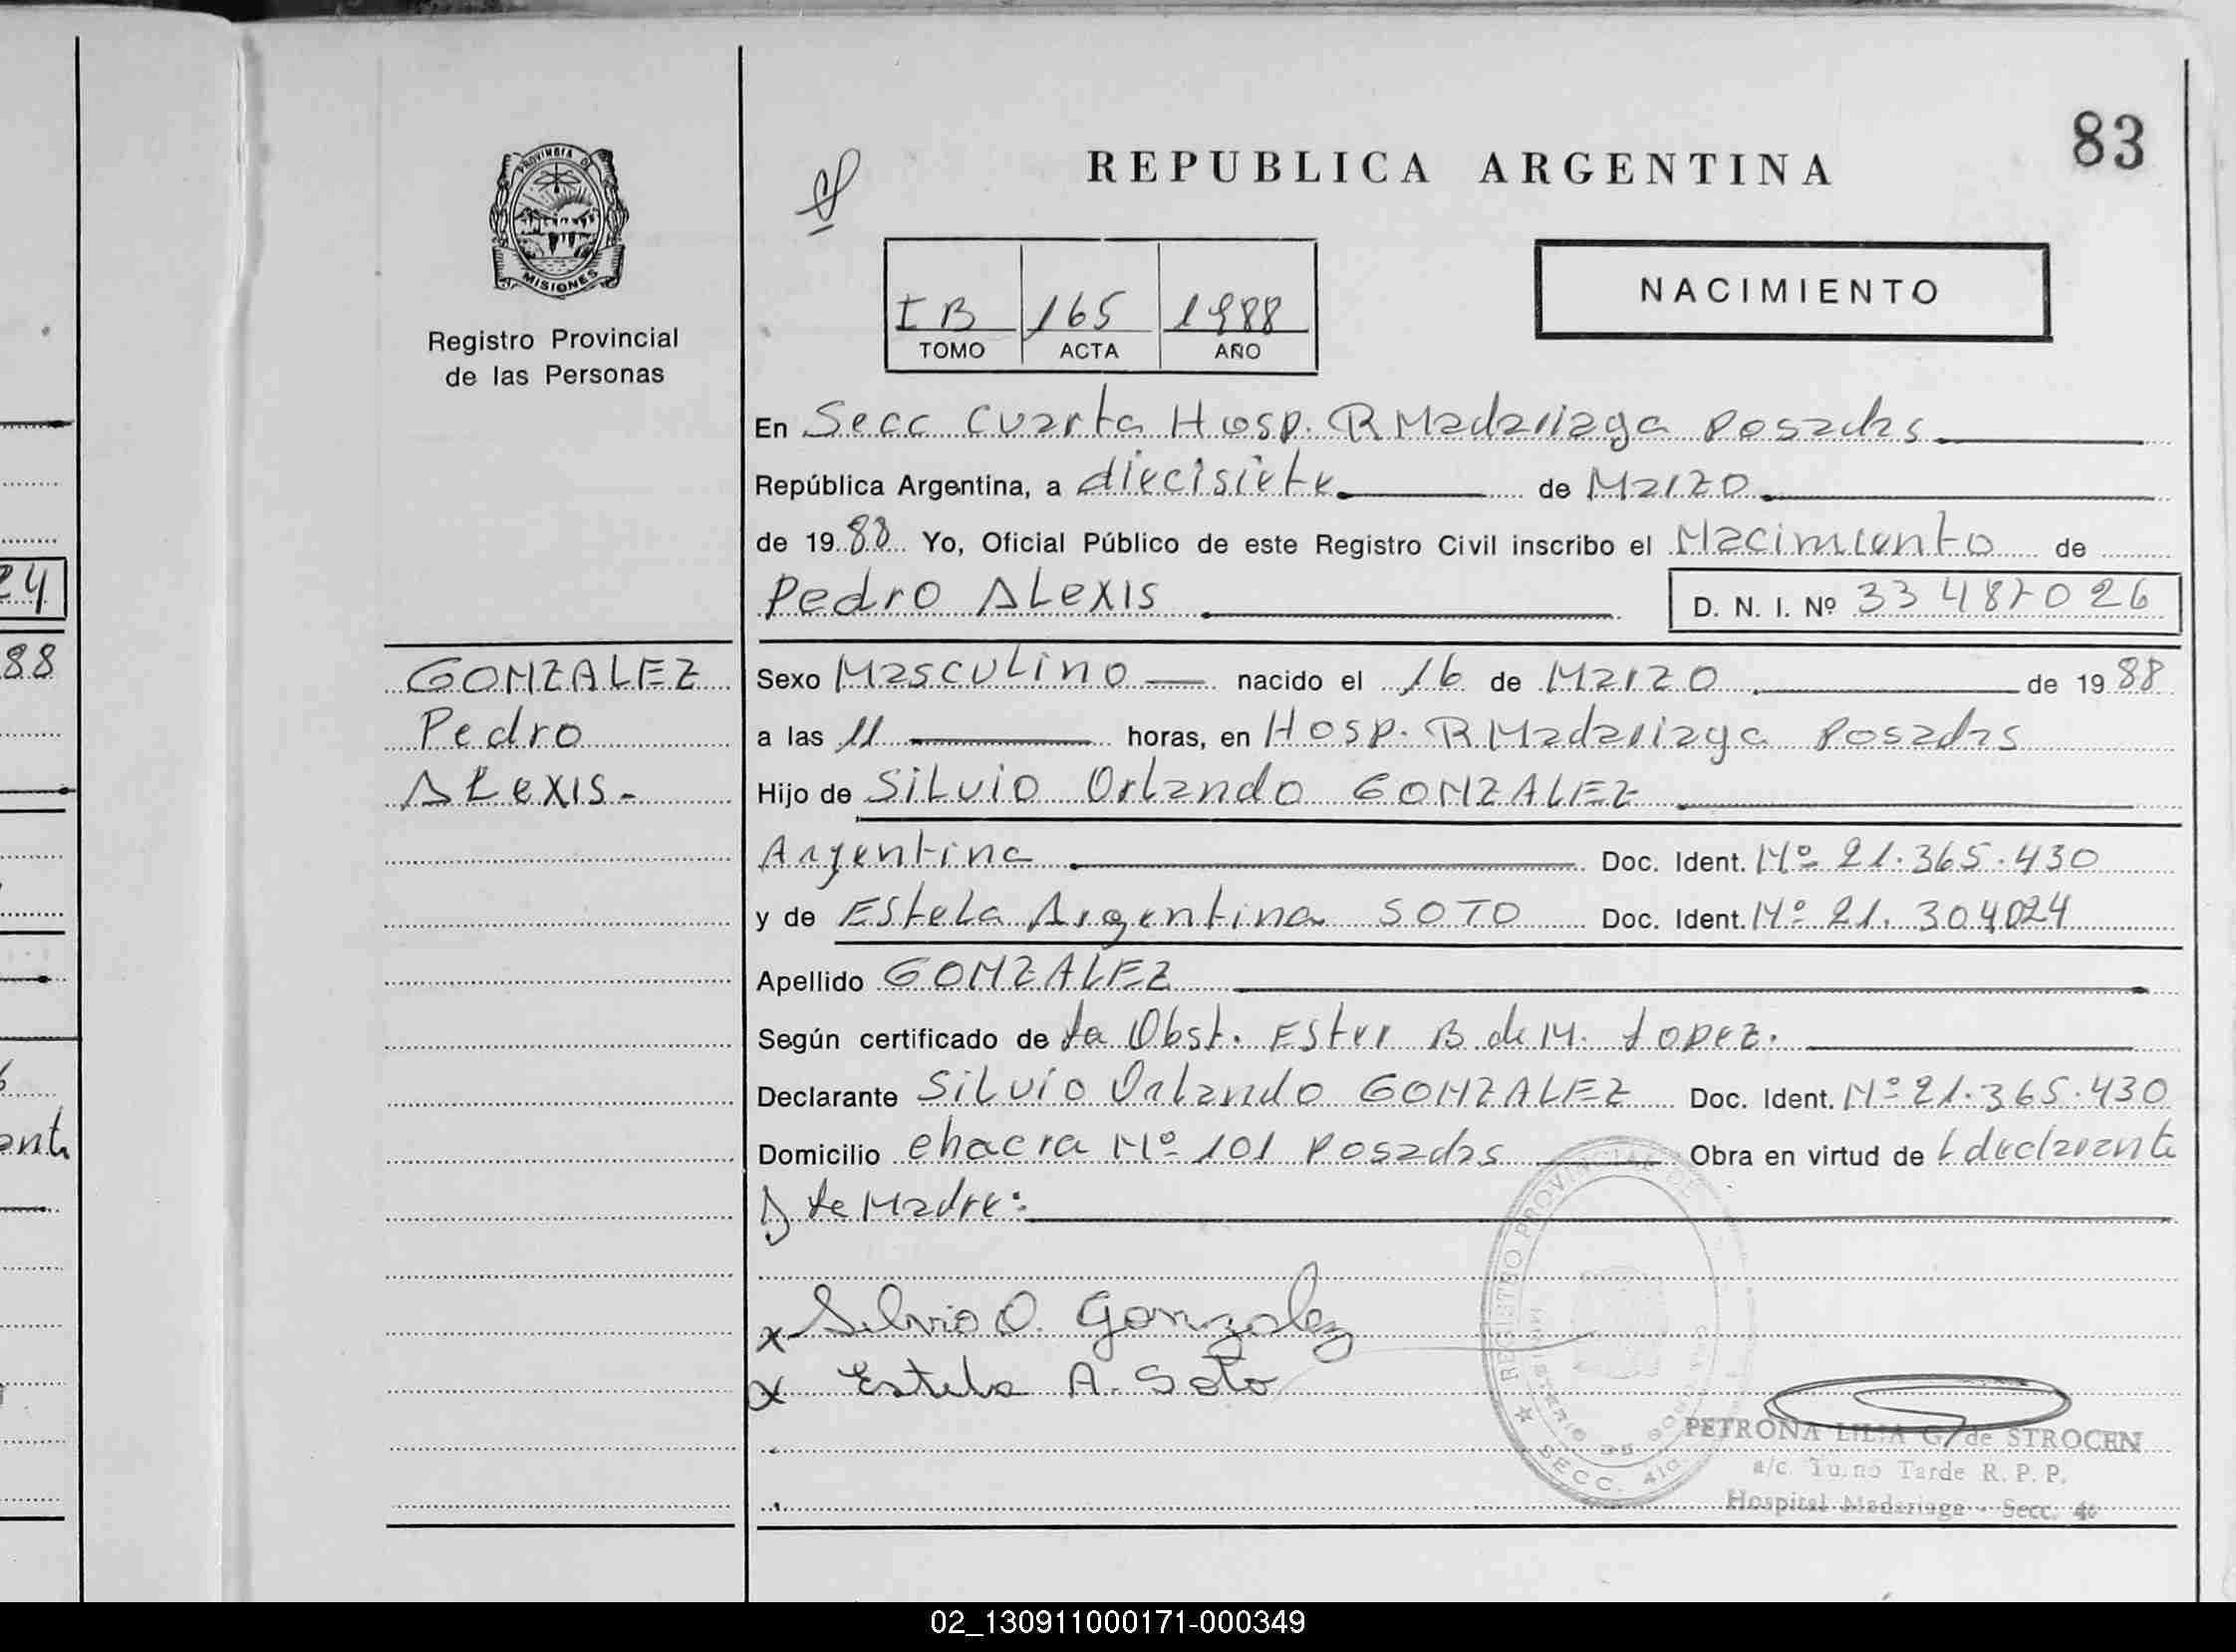 83
REPUBLICA ARGENTINA
PROVINCIA DE
MISIONES
Registro Provincial
de las Personas
I B 165 1988
TOMO ACTA AÑO
NACIMIENTO
En Secc Cuarta Hosp. R Madariaga Posadas
República Argentina, a diecisiete de Marzo
de 1988 Yo, Oficial Público de este Registro Civil inscribo el Nacimiento de
Pedro ALexis
D. N. I. Nº 33 487026
24
88
GONZALEZ
Pedro
ALexis-
Sexo Masculino nacido el 16 de Marzo de 1988
a las 11 horas, en Hosp. R Madariaga Posadas
Hijo de SiLvio Orlando GONZALEZ
Argentina Doc. Ident. Nº 21.365.430
y de EsteLa Argentina SOTO Doc. Ident. Nº 21.304024
Apellido GONZALEZ
Según certificado de la Obst. Ester B de M. Lopez.
Declarante SiLvio Orlando GONZALEZ Doc. Ident. Nº 21.365.430
Domicilio chacra Nº 101 Posadas Obra en virtud de declarante
Madre:
x Silvio O. Gonzalez
x Estela A. Soto
REGISTRO PROVINCIAL DE
SECC. 4ta
PETRONA LILIA G. de STROCEN
a/c Turno Tarde R. P. P.
Hospital Madariaga - Secc. 4a
02_130911000171-000349